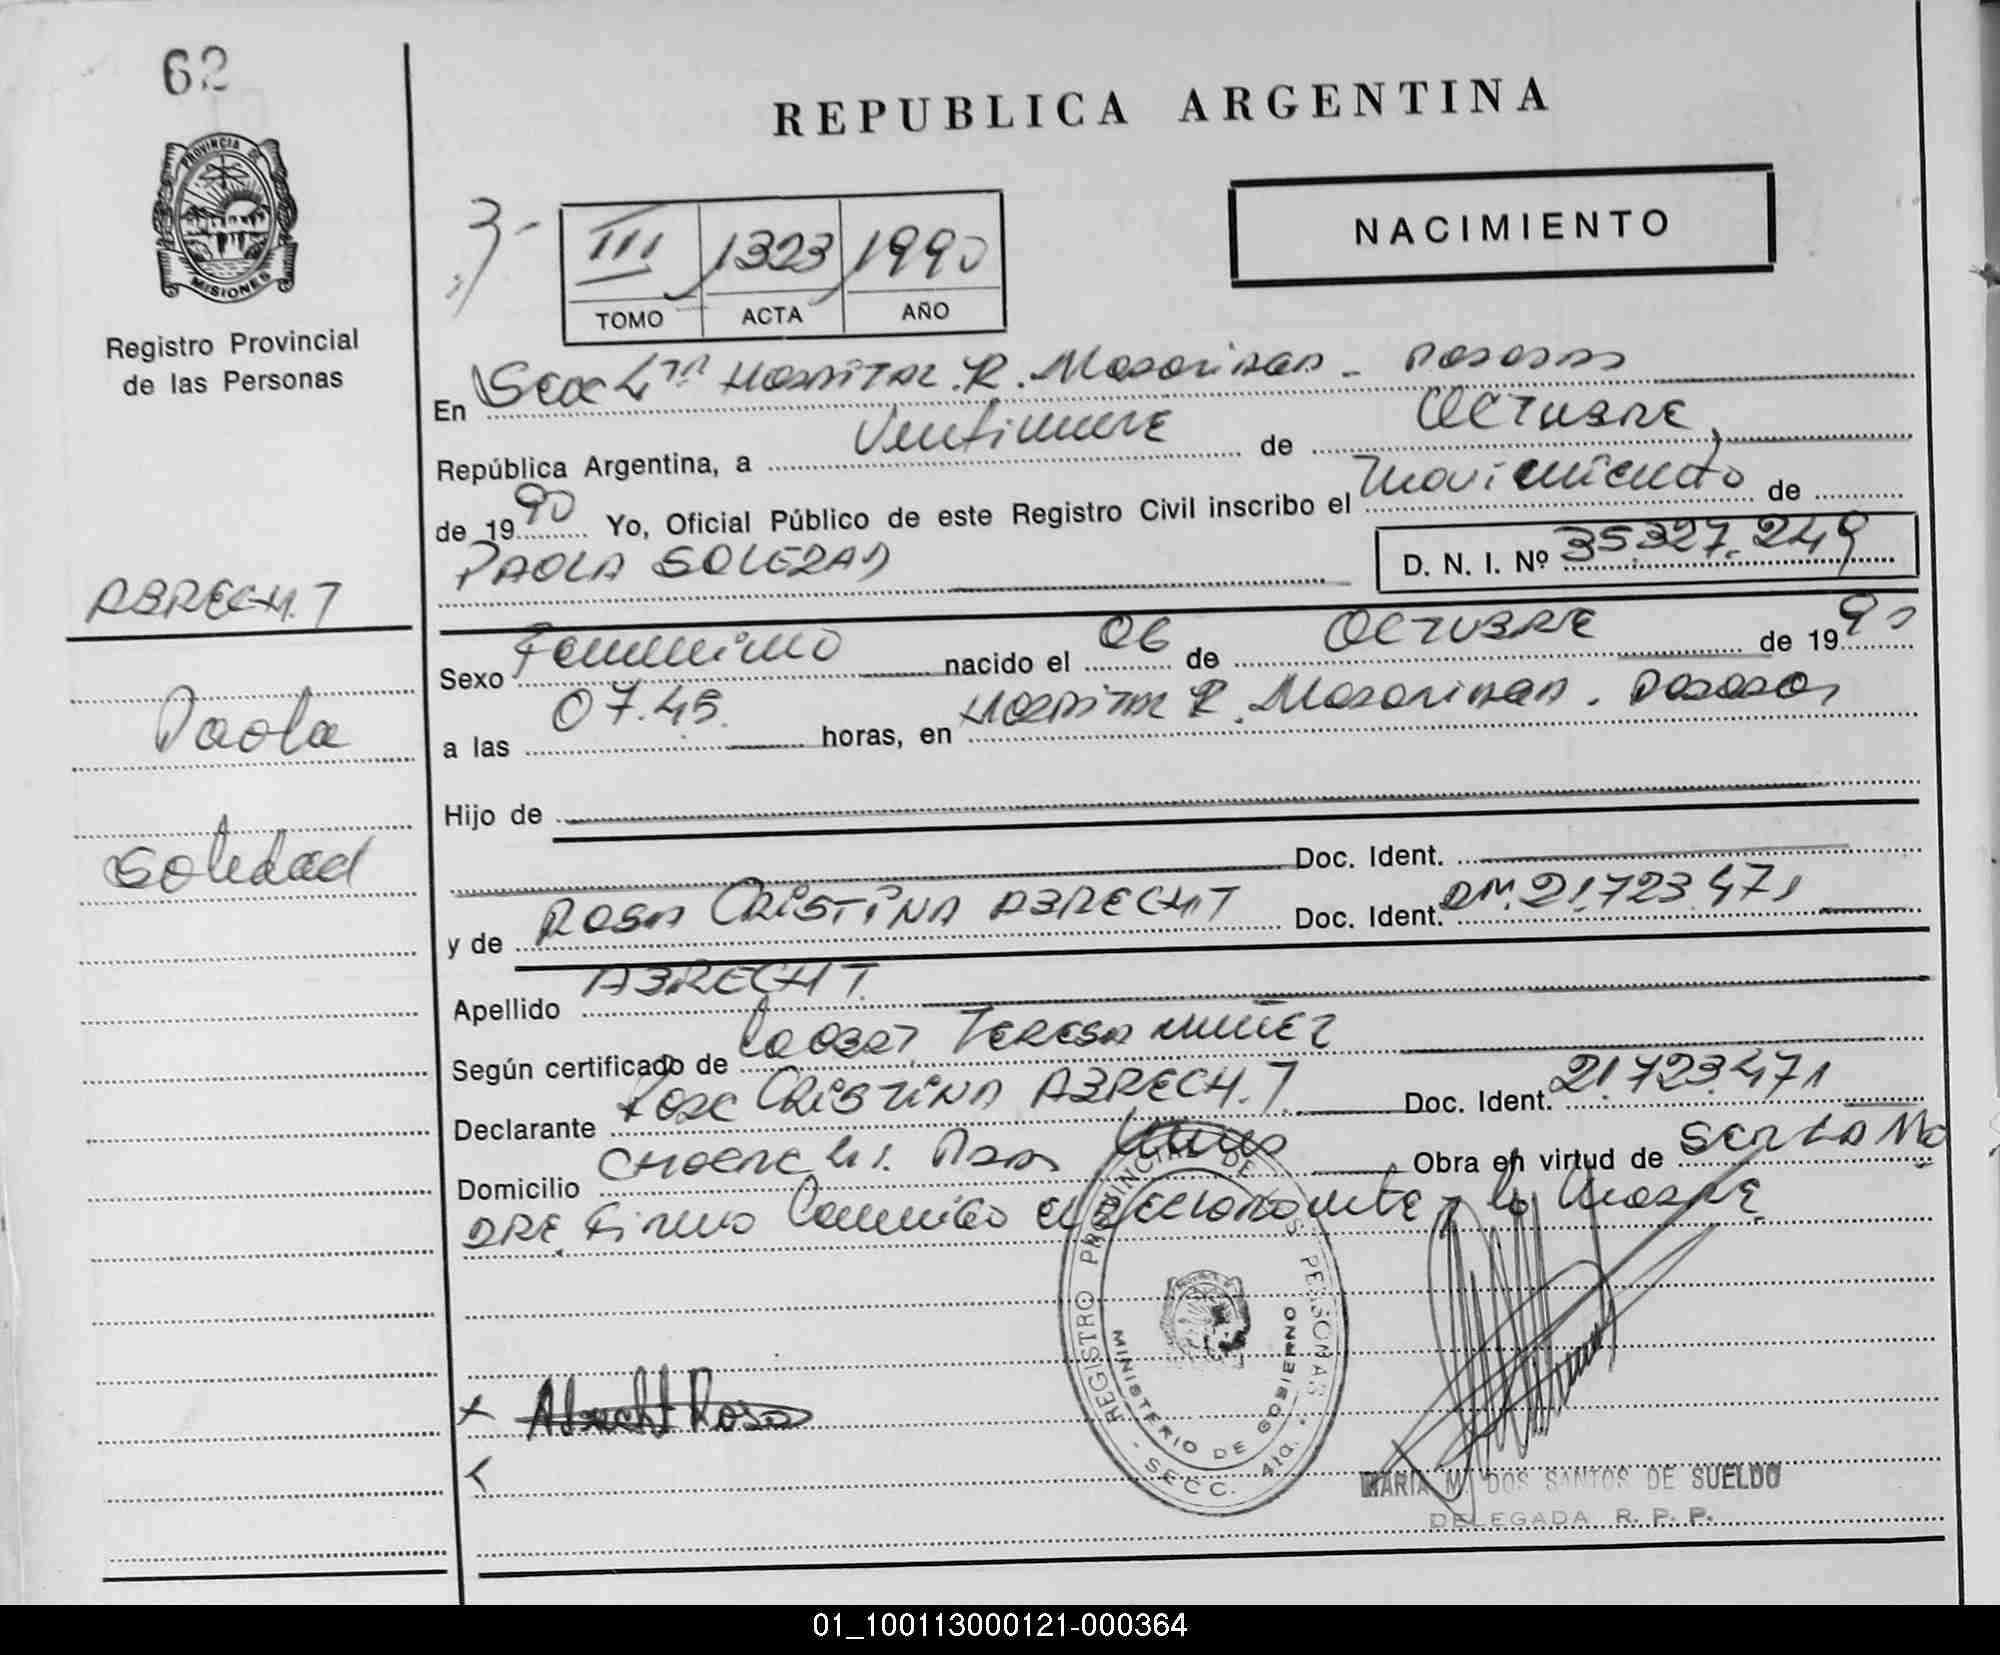 62
REPUBLICA ARGENTINA
PROVINCIA DE
MISIONES
Registro Provincial
de las Personas
NACIMIENTO
3-
III 1323 1990
TOMO ACTA AÑO
En Secc 4ta Hospital R. Madariaga - Posadas
República Argentina, a Veintinueve de Octubre
de 1990 Yo, Oficial Público de este Registro Civil inscribo el Nacimiento de
PAOLA SOLEDAD D. N. I. Nº 35.327.249
ABRECH.T
Paola
Soledad
Sexo Femenino nacido el 06 de OCTUBRE de 1990
a las 07.45. horas, en Hospital R. Madariaga. Posadas
Hijo de
Doc. Ident.
y de ROSA CRISTINA ABRECHT Doc. Ident. 21.723.471
Apellido ABRECHT.
Según certificado de TERESA NUÑEZ
Declarante CRISTINA ABRECH.T. Doc. Ident. 21.723.471
Domicilio Obra en virtud de ser la Ma
DRE. Firma Conmigo el declarante y la Madre
REGISTRO PROVINCIAL DE LAS PERSONAS
MINISTERIO DE GOBIERNO
- SECC. 4ta. -
x Abrecht Rosa
MARIA M. DOS SANTOS DE SUELDO
DELEGADA R. P. P.
01_100113000121-000364